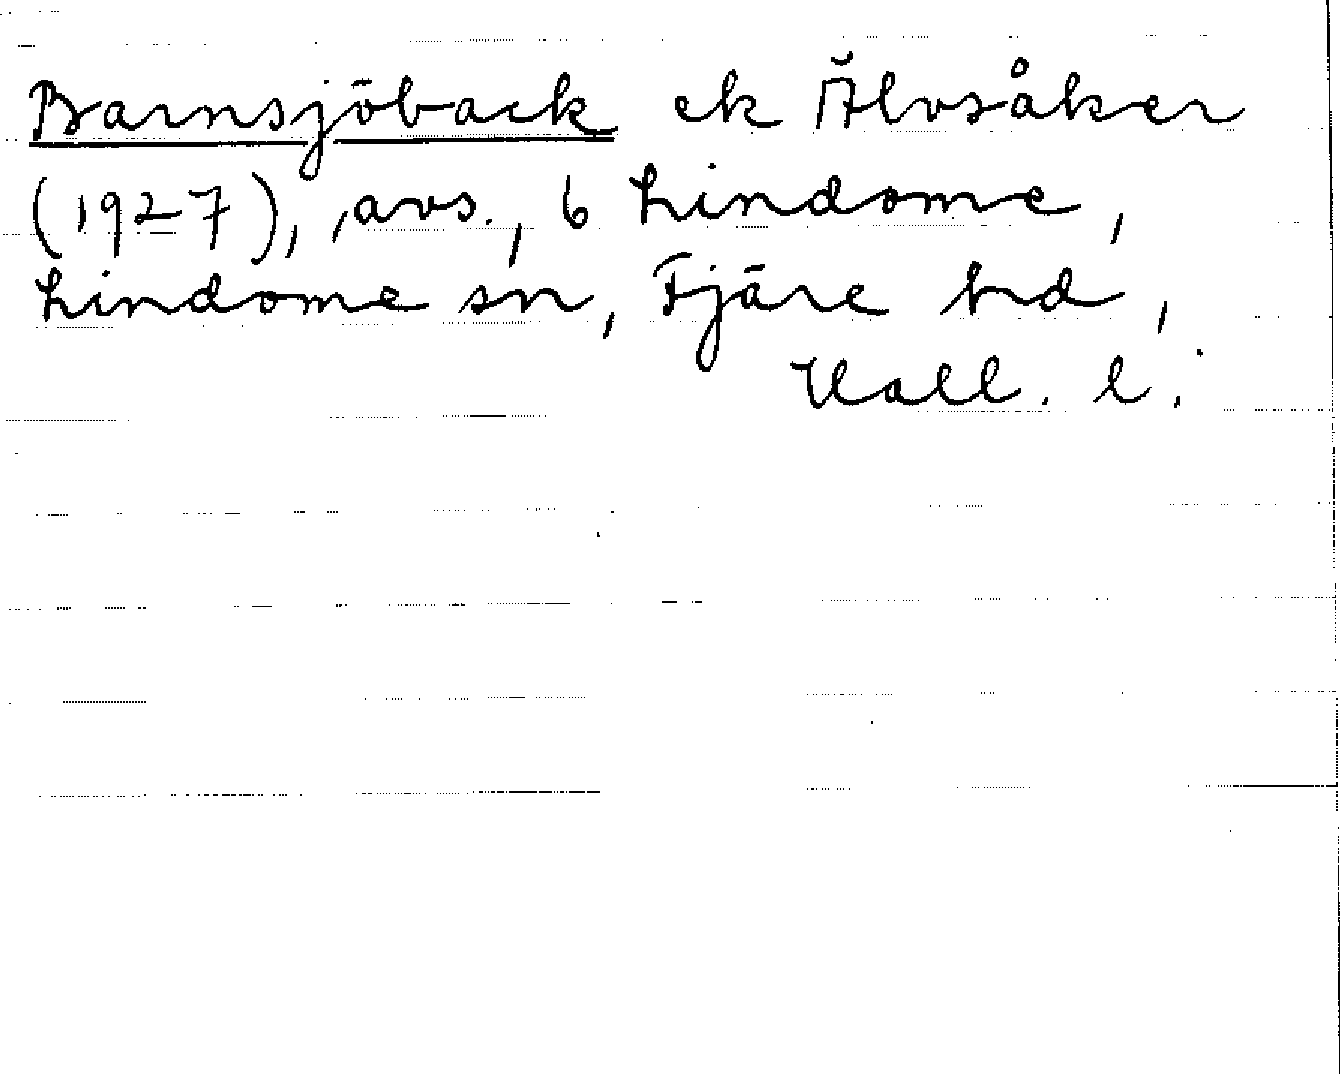 Barnsjöback ek Älvsåker
(1927), avs., 6 Lindome,
Lindome sn, Fjäre hd,
Hall. l.